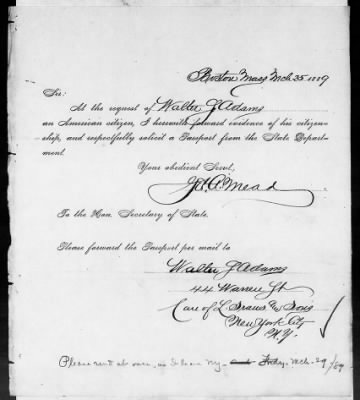 Boston Mass Mch. 25 1889
Sir:
At the request of Walter J Adams
an American citizen, I herewith forward evidence of his citizen-
ship, and respectfully solicit a Passport from the State Depart-
ment.
Your obedient Servt,
Mead
To the Hon. Secretary of State.
Please forward the Passport per mail to
Walter J Adams
44 Warren St
Care of L. & Sons
New York City
N.Y.
Please send at once, as I leave N.Y. Friday, Mch. 29 /89